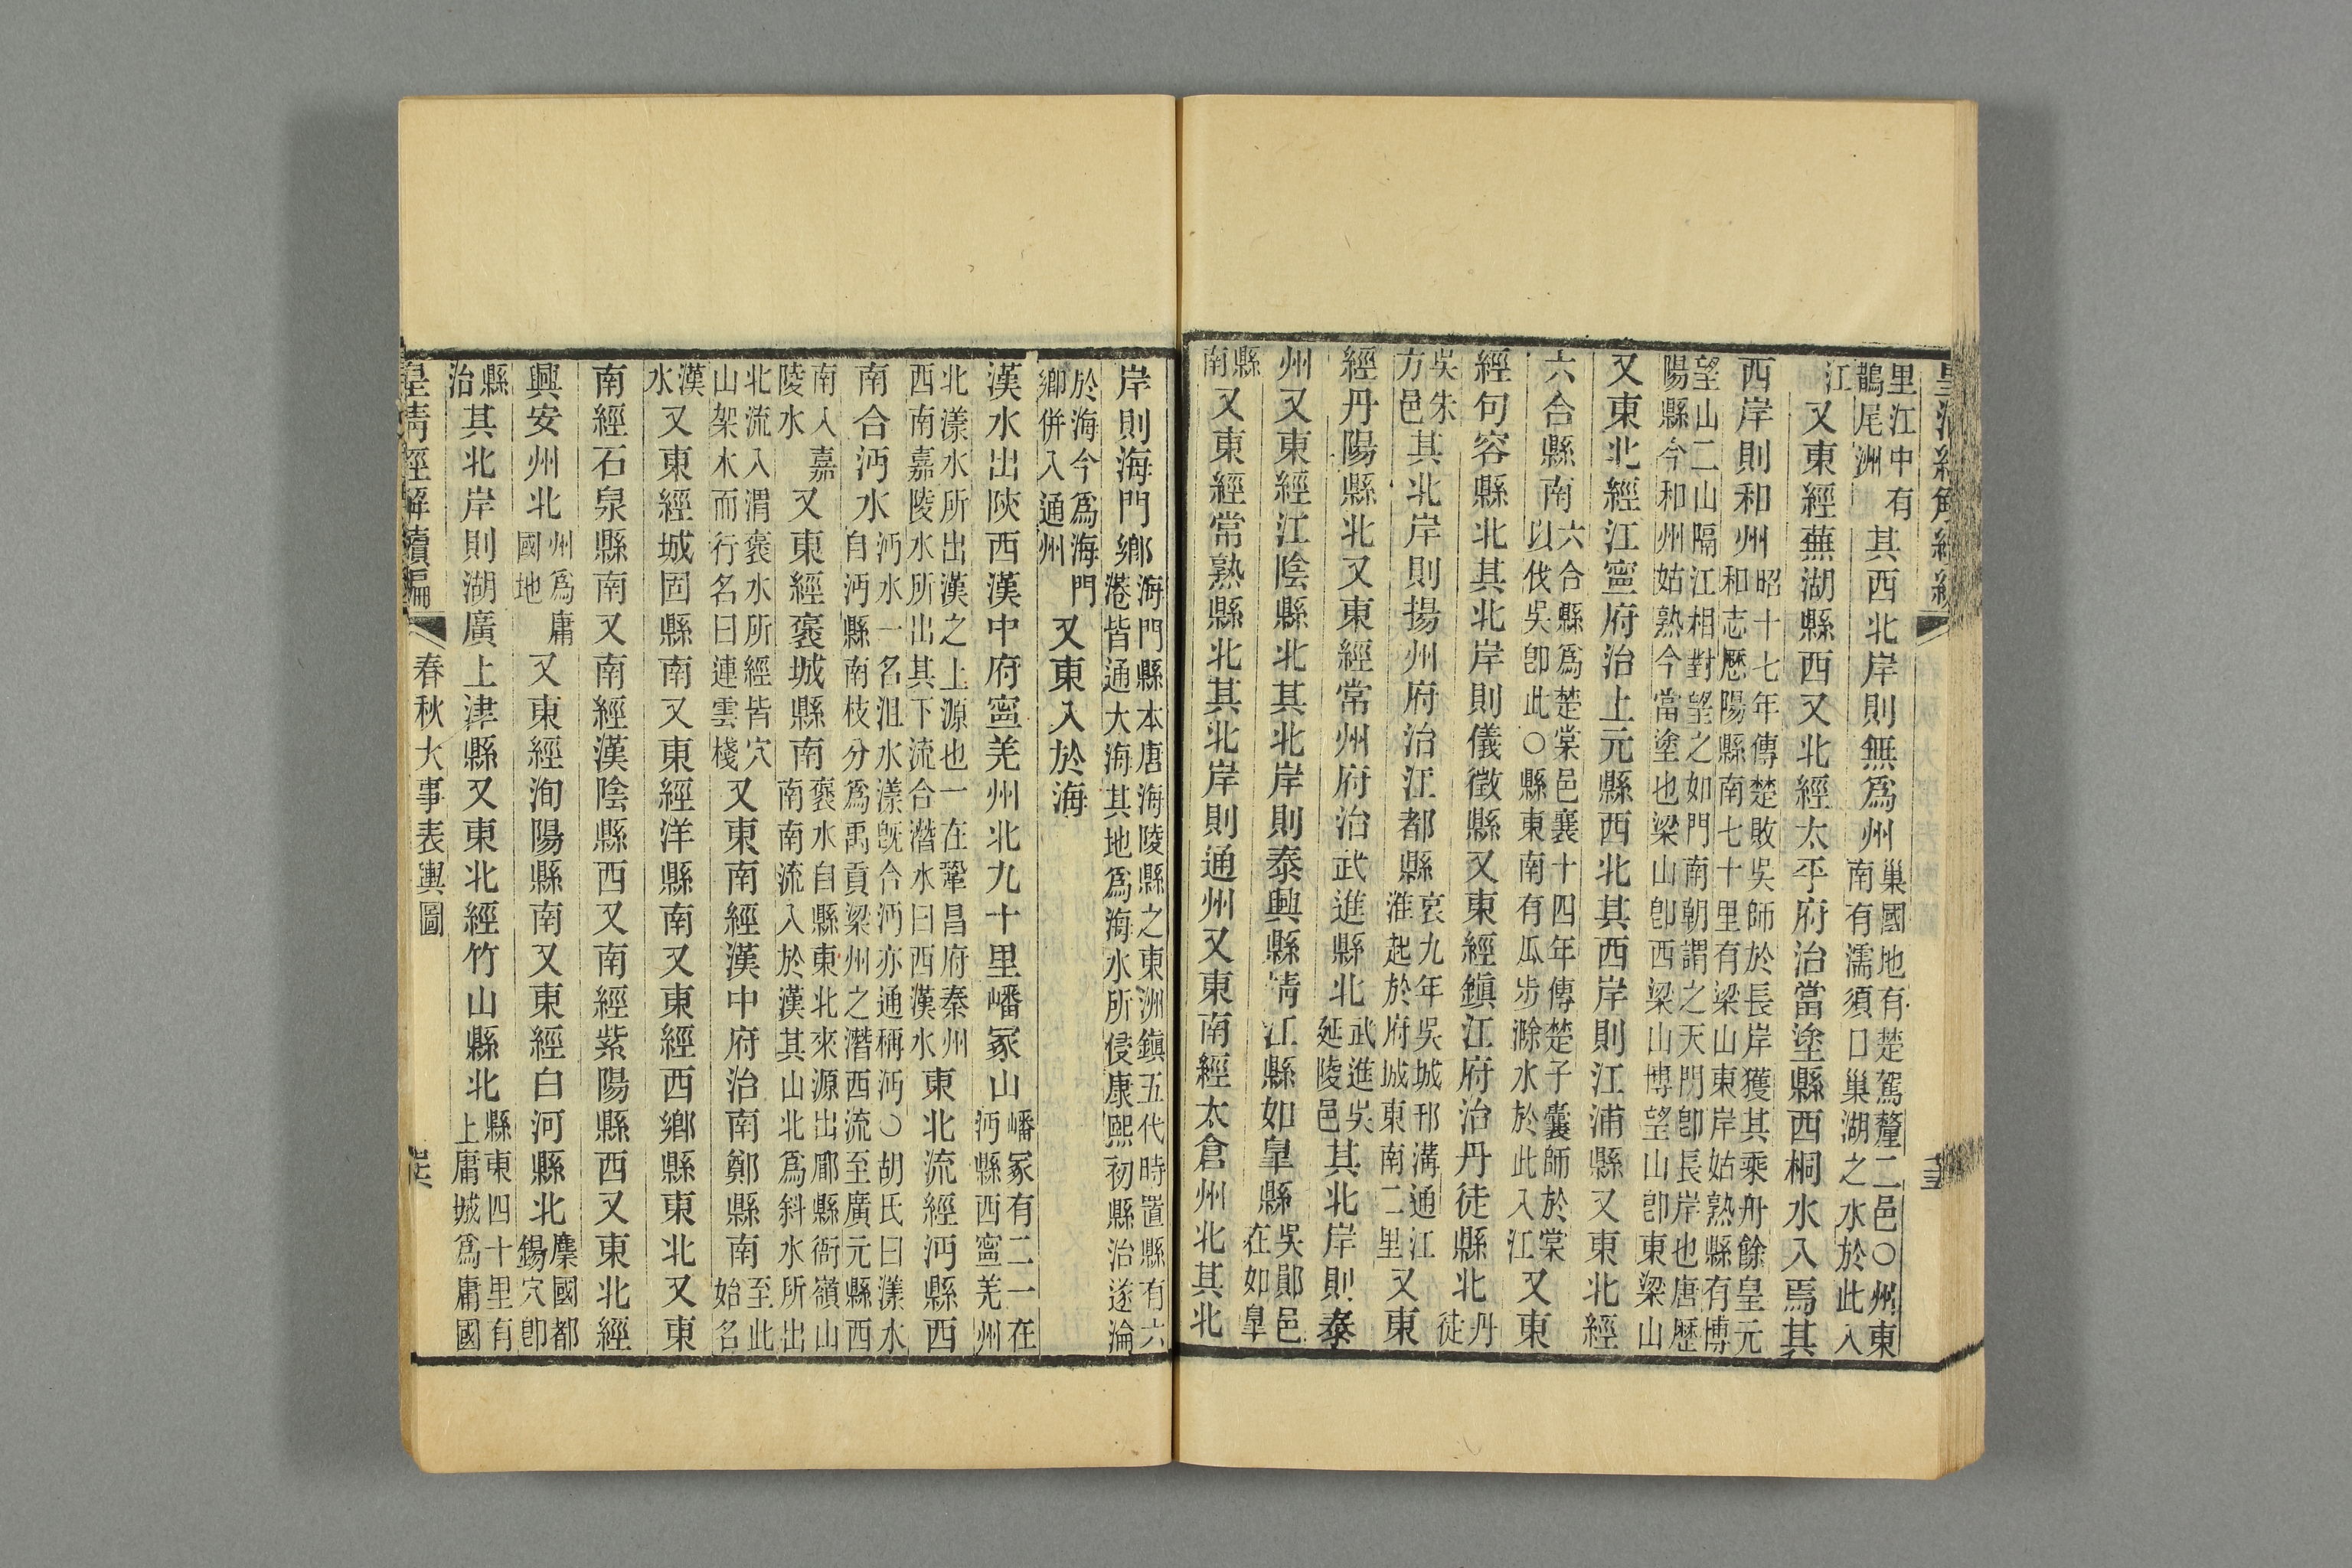 里江中有鵲尾洲江其西北岸則無爲州巢國地有楚駕釐二邑〇州東南有濡須口巢湖之水於此入
江又東經蕪湖縣西又北經太平府治當塗縣西桐水入焉其
西岸則和州昭十七年傳楚敗吳師於長岸獲其乘舟餘皇元和志歷陽縣南七十里有梁山東岸姑熟縣有博
望山二山隔江相對望之如門南朝謂之天門卽長岸也唐歷陽縣今和州姑熟今當塗也梁山卽西梁山博望山卽東梁山
又東北經江寧府治上元縣西北其西岸則江浦縣又東北經
六合縣南六合縣爲楚棠邑襄十四年傳楚子囊師於棠以伐吳卽此〇縣東南有瓜步滁水於此入江又東
經句容縣北其北岸則儀徵縣又東經鎮江府治丹徒縣北丹徒
吳朱方邑其北岸則揚州府治江都縣哀九年吳城邗溝通江淮起於府城東南二里又東
經丹陽縣北又東經常州府治武進縣北武進吳延陵邑其北岸則泰
州又東經江陰縣北其北岸則泰興縣靖江縣如皐縣吳鄖邑在如皐
縣南又東經常熟縣北其北岸則通州又東南經太倉州北其北
岸則海門鄉海門縣本唐海陵縣之東洲鎮五代時置縣有六港皆通大海其地爲海水所侵康熙初縣治遂淪
於海今爲海門鄉併入通州又東入於海
漢水出陝西漢中府寧羌州北九十里嶓冢山嶓冢有二一在沔縣西寧羌州
北漾水所出漢之上源也一在鞏昌府秦州西南嘉陵水所出其下流合潛水曰西漢水東北流經沔縣西
南合沔水沔水一名沮水漾旣合沔亦通稱沔〇胡氏曰漾水自沔縣南枝分爲禹貢梁州之潛西流至廣元縣西
南入嘉陵水又東經褒城縣南褒水自縣東北來源出郿縣衙嶺山南南流入於漢其山北爲斜水所出
北流入渭褒水所經皆穴山架木而行名曰連雲棧又東南經漢中府治南鄭縣南至此始名
漢水又東經城固縣南又東經洋縣南又東經西鄉縣東北又東
南經石泉縣南又南經漢陰縣西又南經紫陽縣西又東北經
興安州北州爲庸國地又東經洵陽縣南又東經白河縣北麇國都錫穴卽
縣治其北岸則湖廣上津縣又東北經竹山縣北縣東四十里有上庸城爲庸國
皇清經解續編
春秋大事表輿圖